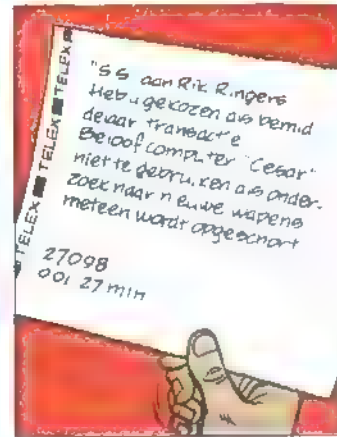 TELEX TELEX TELEX
"SS aan Rik Ringers
Heb u gekozen als bemid
delaar transactie
Beloof computer "Cesar"
niet te gebruiken als onder-
zoek naar nieuwe wapens
meteen wordt opgeschort
27098
001 27 min